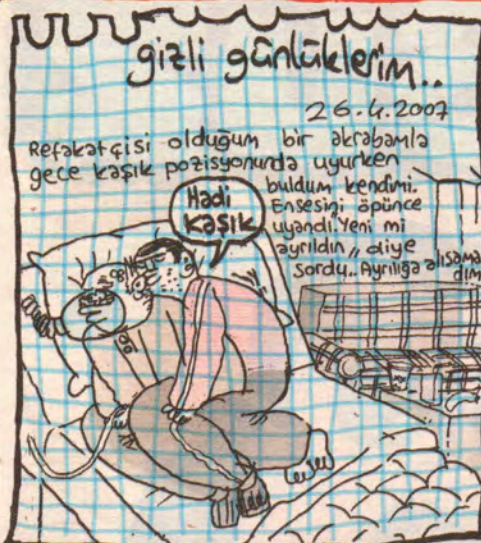 gizli günlüklerim..
26.4.2007
Refakatçisi olduğum bir akrabamla
gece kaşık pozisyonunda uyurken
buldum kendimi.
Ensesini öpünce
uyandı. "Yeni mi
ayrıldın" diye
sordu.. Ayrılığa alışama
dım
Hadi
kaşık